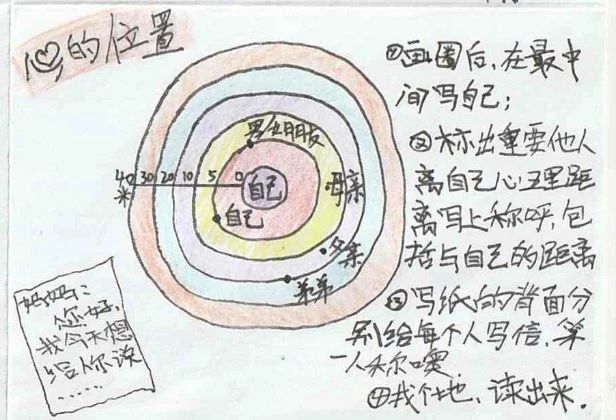 心的位置
①画圈后,在最中
间写自己;
②标出重要他人
离自己心理距
离写上称呼,包
括与自己的距离
③写纸的背面分
别给每个人写信,第
一人称噢
④找个地,读出来.
男女朋友
40 30 20 10 5 0
米
自己
母亲
自己
父亲
弟弟
妈妈:
您好,
我今天想
给你读
……